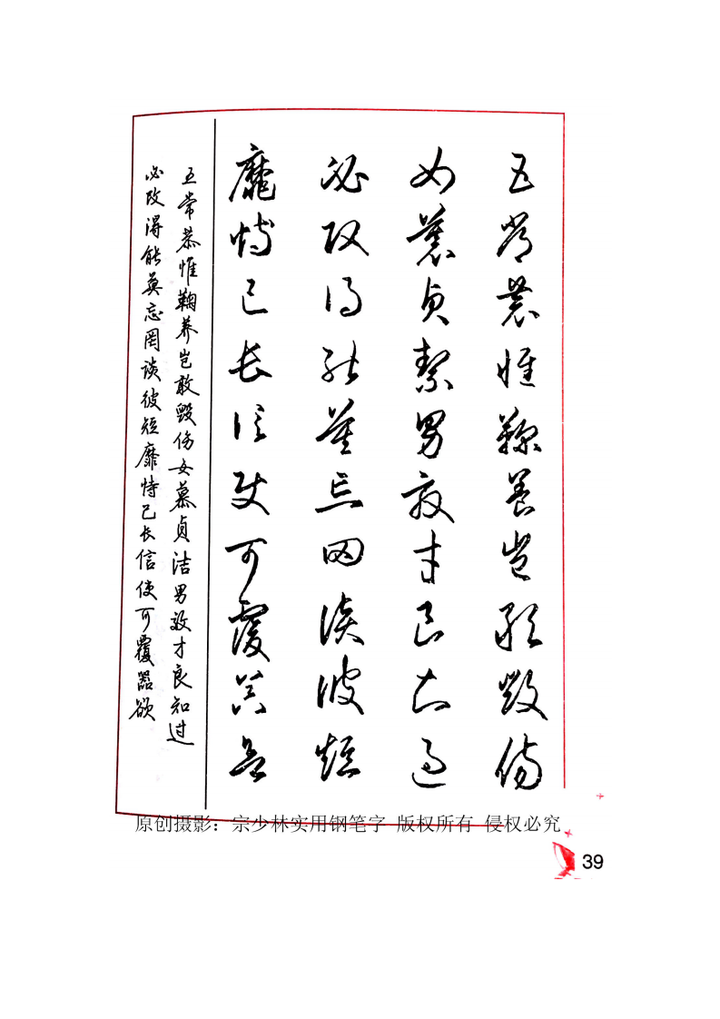 五常恭惟鞠养岂敢毁伤
女慕贞洁男效才良知过
必改得能莫忘罔谈彼短
靡恃己长信使可覆器欲
五常恭惟鞠养岂敢毁伤女慕贞洁男效才良知过
必改得能莫忘罔谈彼短靡恃己长信使可覆器欲
原创摄影：宗少林实用钢笔字 版权所有 侵权必究
39